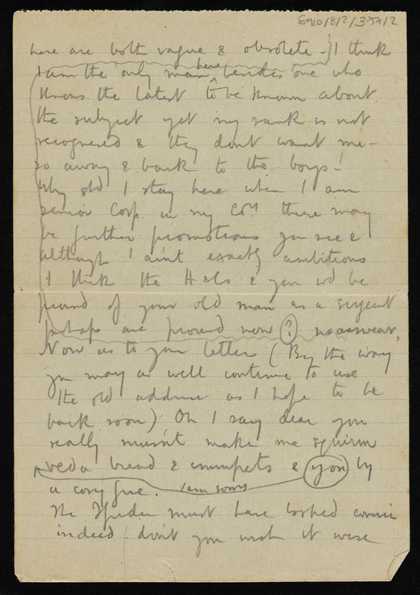 here are both vague & obsolete -) I think
I am the only man here besides one who
knows the latest to be known about
the subject yet my rank is not
recognered & they dont want me -
so away & back to the boys!
Why old I stay here when I am
senior Corp in my Coy there may
be further promotions you see &
although I aint exactly ambitious
I think the & you wd be
proud of your old man as a sergeant
perhaps are proud now ? no answer.
Now as to your letters (By the way
you may as well continue to use
the old address as I hope to be
back soon) Oh I say dear you
really musn't make me squirm
bread & crumpets & you by
a cosy fire. I am sorry
The must have looked comic
indeed don't you wish it were